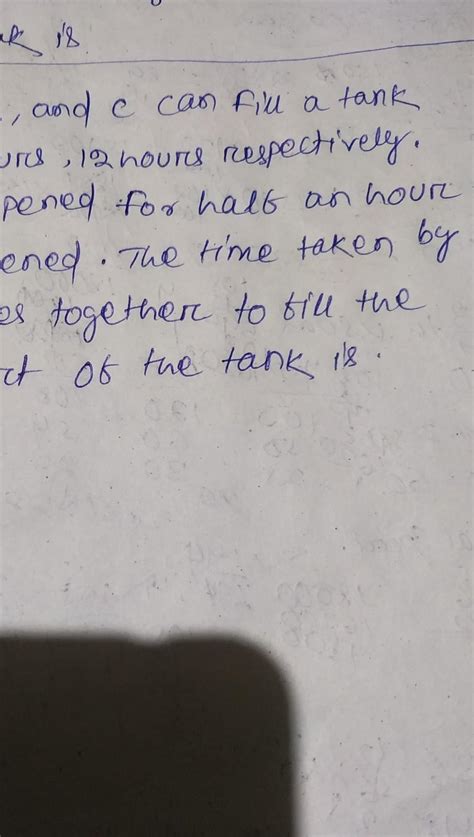 is
, and c can fill a tank
, 12 hours respectively.
pened for half an hour
ened. The time taken by
es together to fill the
ct of the tank is.